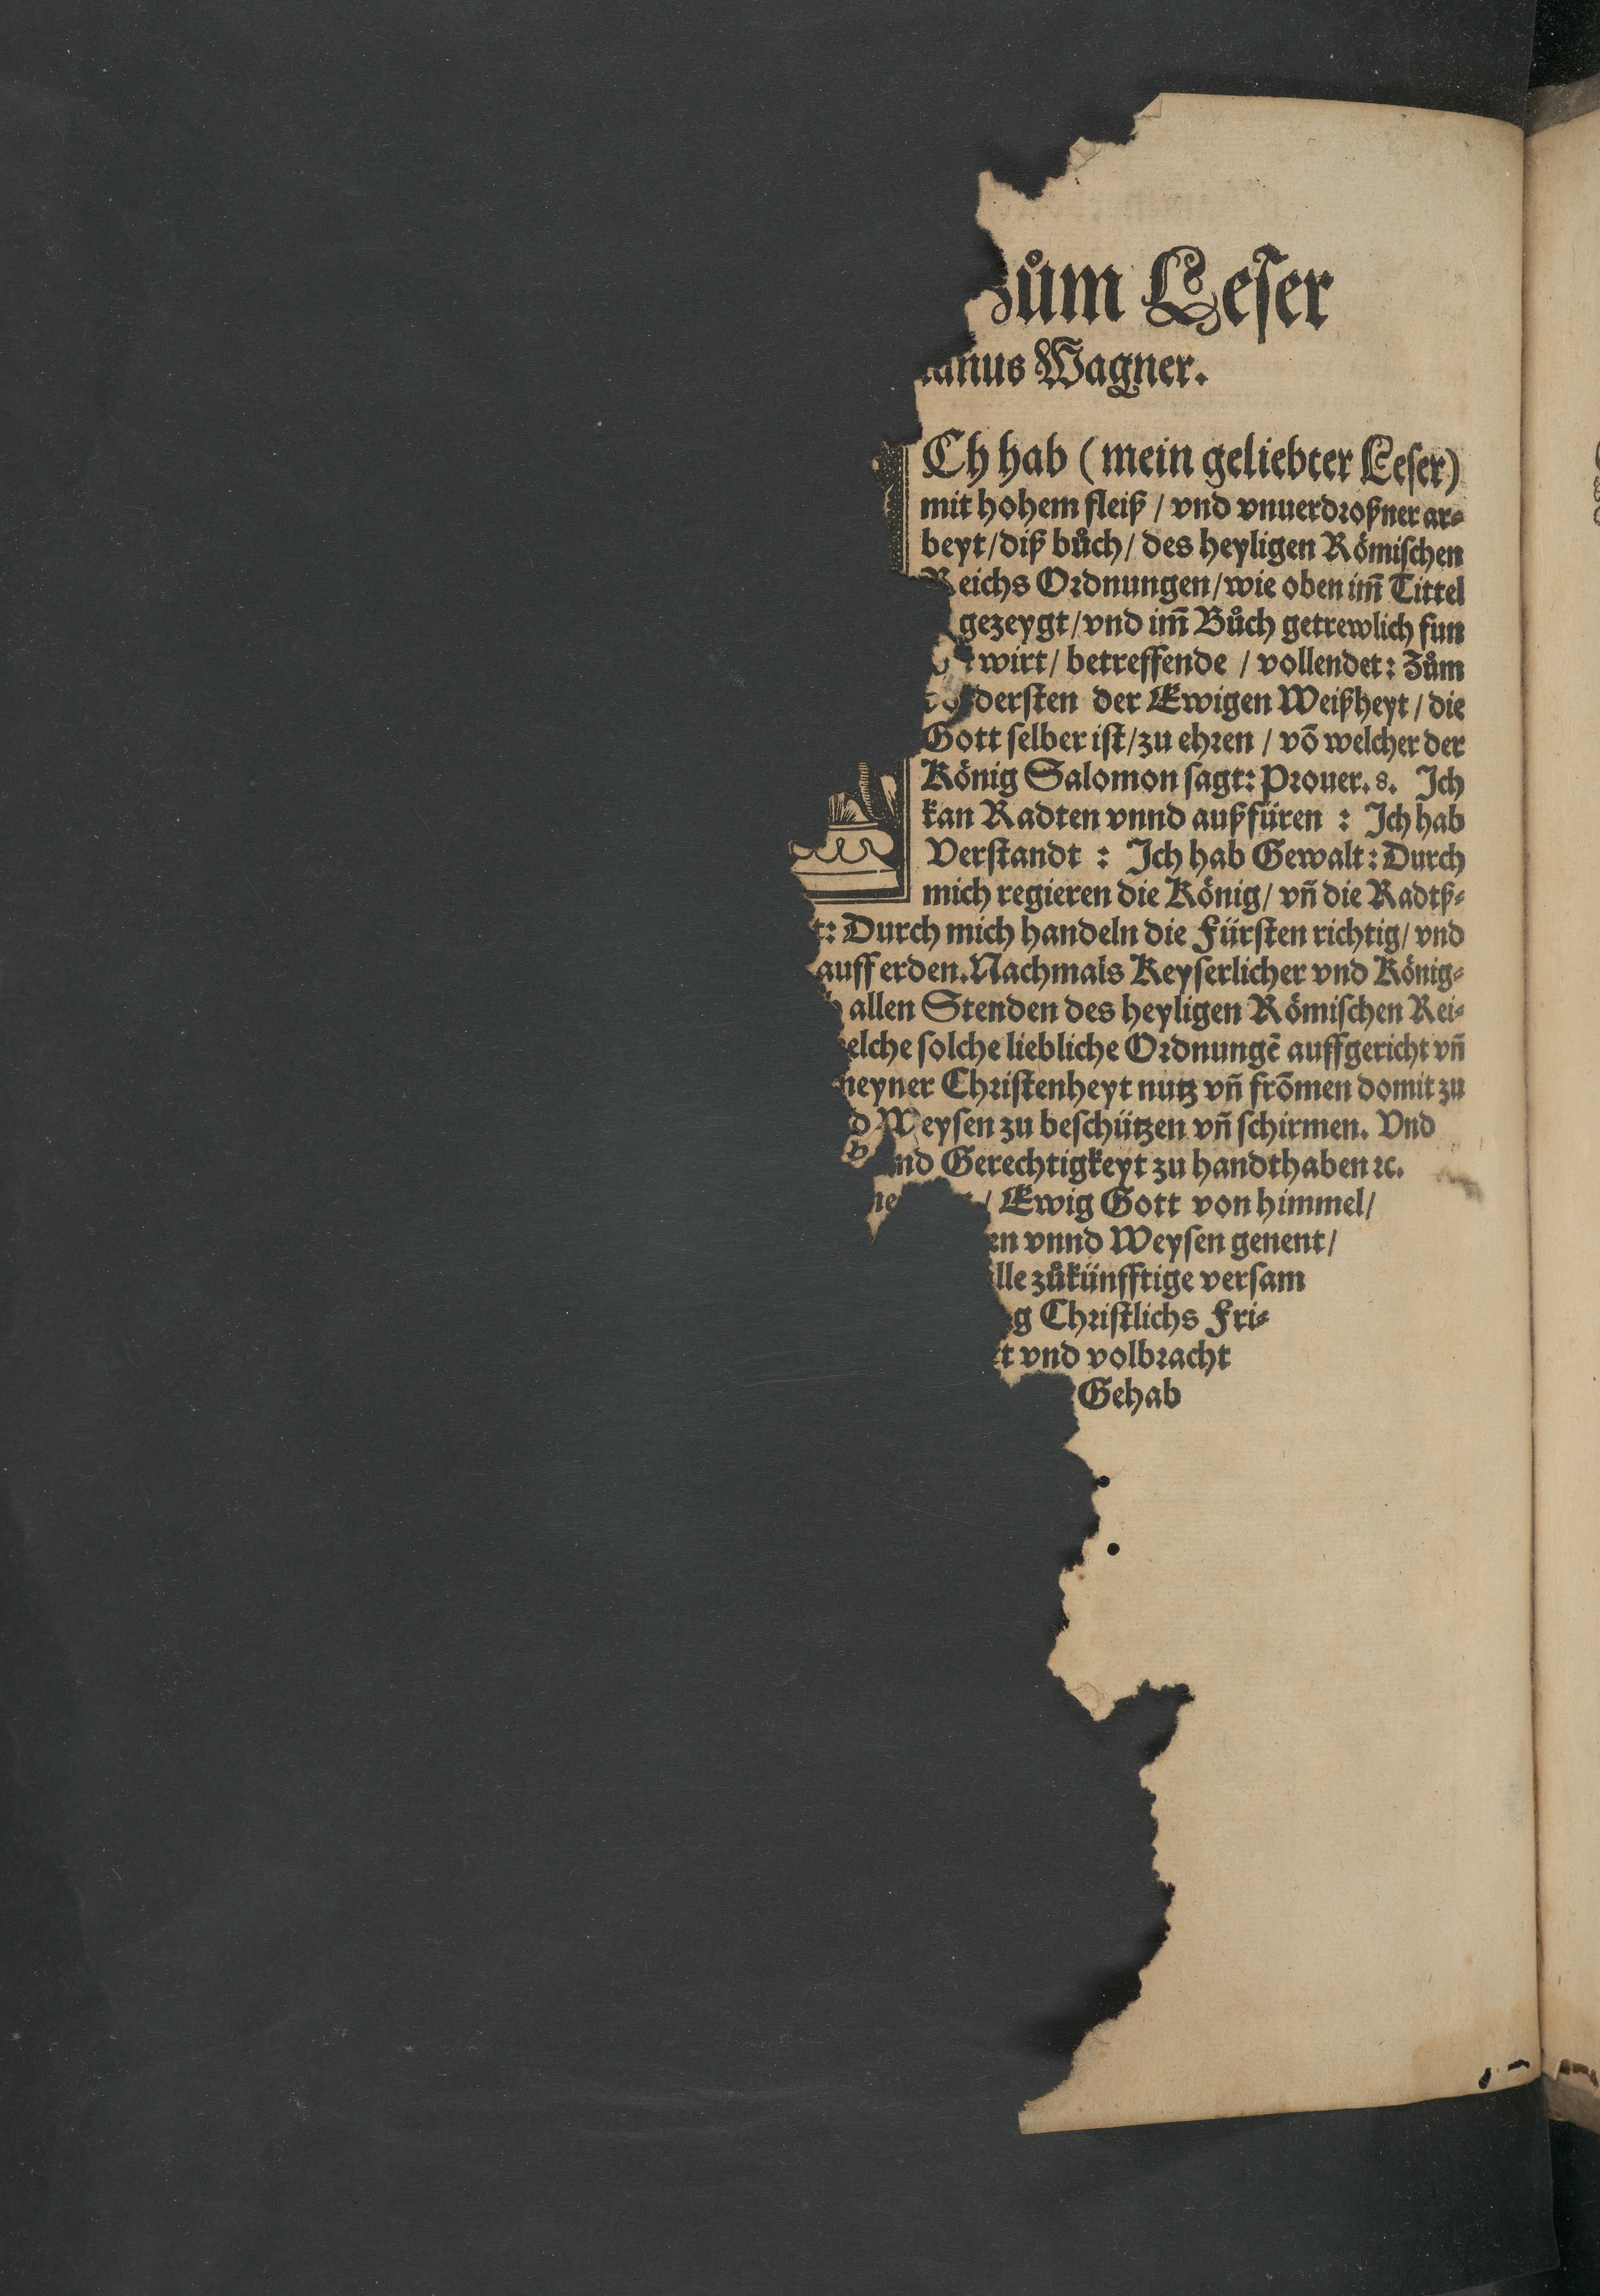 Zům Leser
nus Wagner.
Ch hab (mein geliebter Leser)
mit hohem fleiß / vnd vnuerdroßner ar⸗
beyt / diß bůch / des heyligen Römischen
Reichs Ordnungen / wie oben im̃ Tittel
gezeygt / vnd im̃ Bůch getrewlich fun
wirt / betreffende / vollendet: Zům
dersten der Ewigen Weißheyt / die
Gott selber ist / zu ehren / võ welcher der
König Salomon sagt: Prouer. 8. Ich
kan Radten vnnd außfüren : Ich hab
Verstandt : Ich hab Gewalt: Durch
mich regieren die König / vñ die Radtß⸗
t: Durch mich handeln die Fürsten richtig / vnd
auff erden. Nachmals Keyserlicher vnd König⸗
allen Stenden des heyligen Römischen Rei⸗
elche solche liebliche Ordnungẽ auffgericht vñ
neyner Christenheyt nutz vñ frõmen domit zu
d Weysen zu beschützen vñ schirmen. Vnd
nd Gerechtigkeyt zu handthaben ꝛc.
/ Ewig Gott von himmel /
en vnnd Weysen genent /
lle zůkünfftige versam
g Christlichs Fri⸗
t vnd volbracht
Gehab